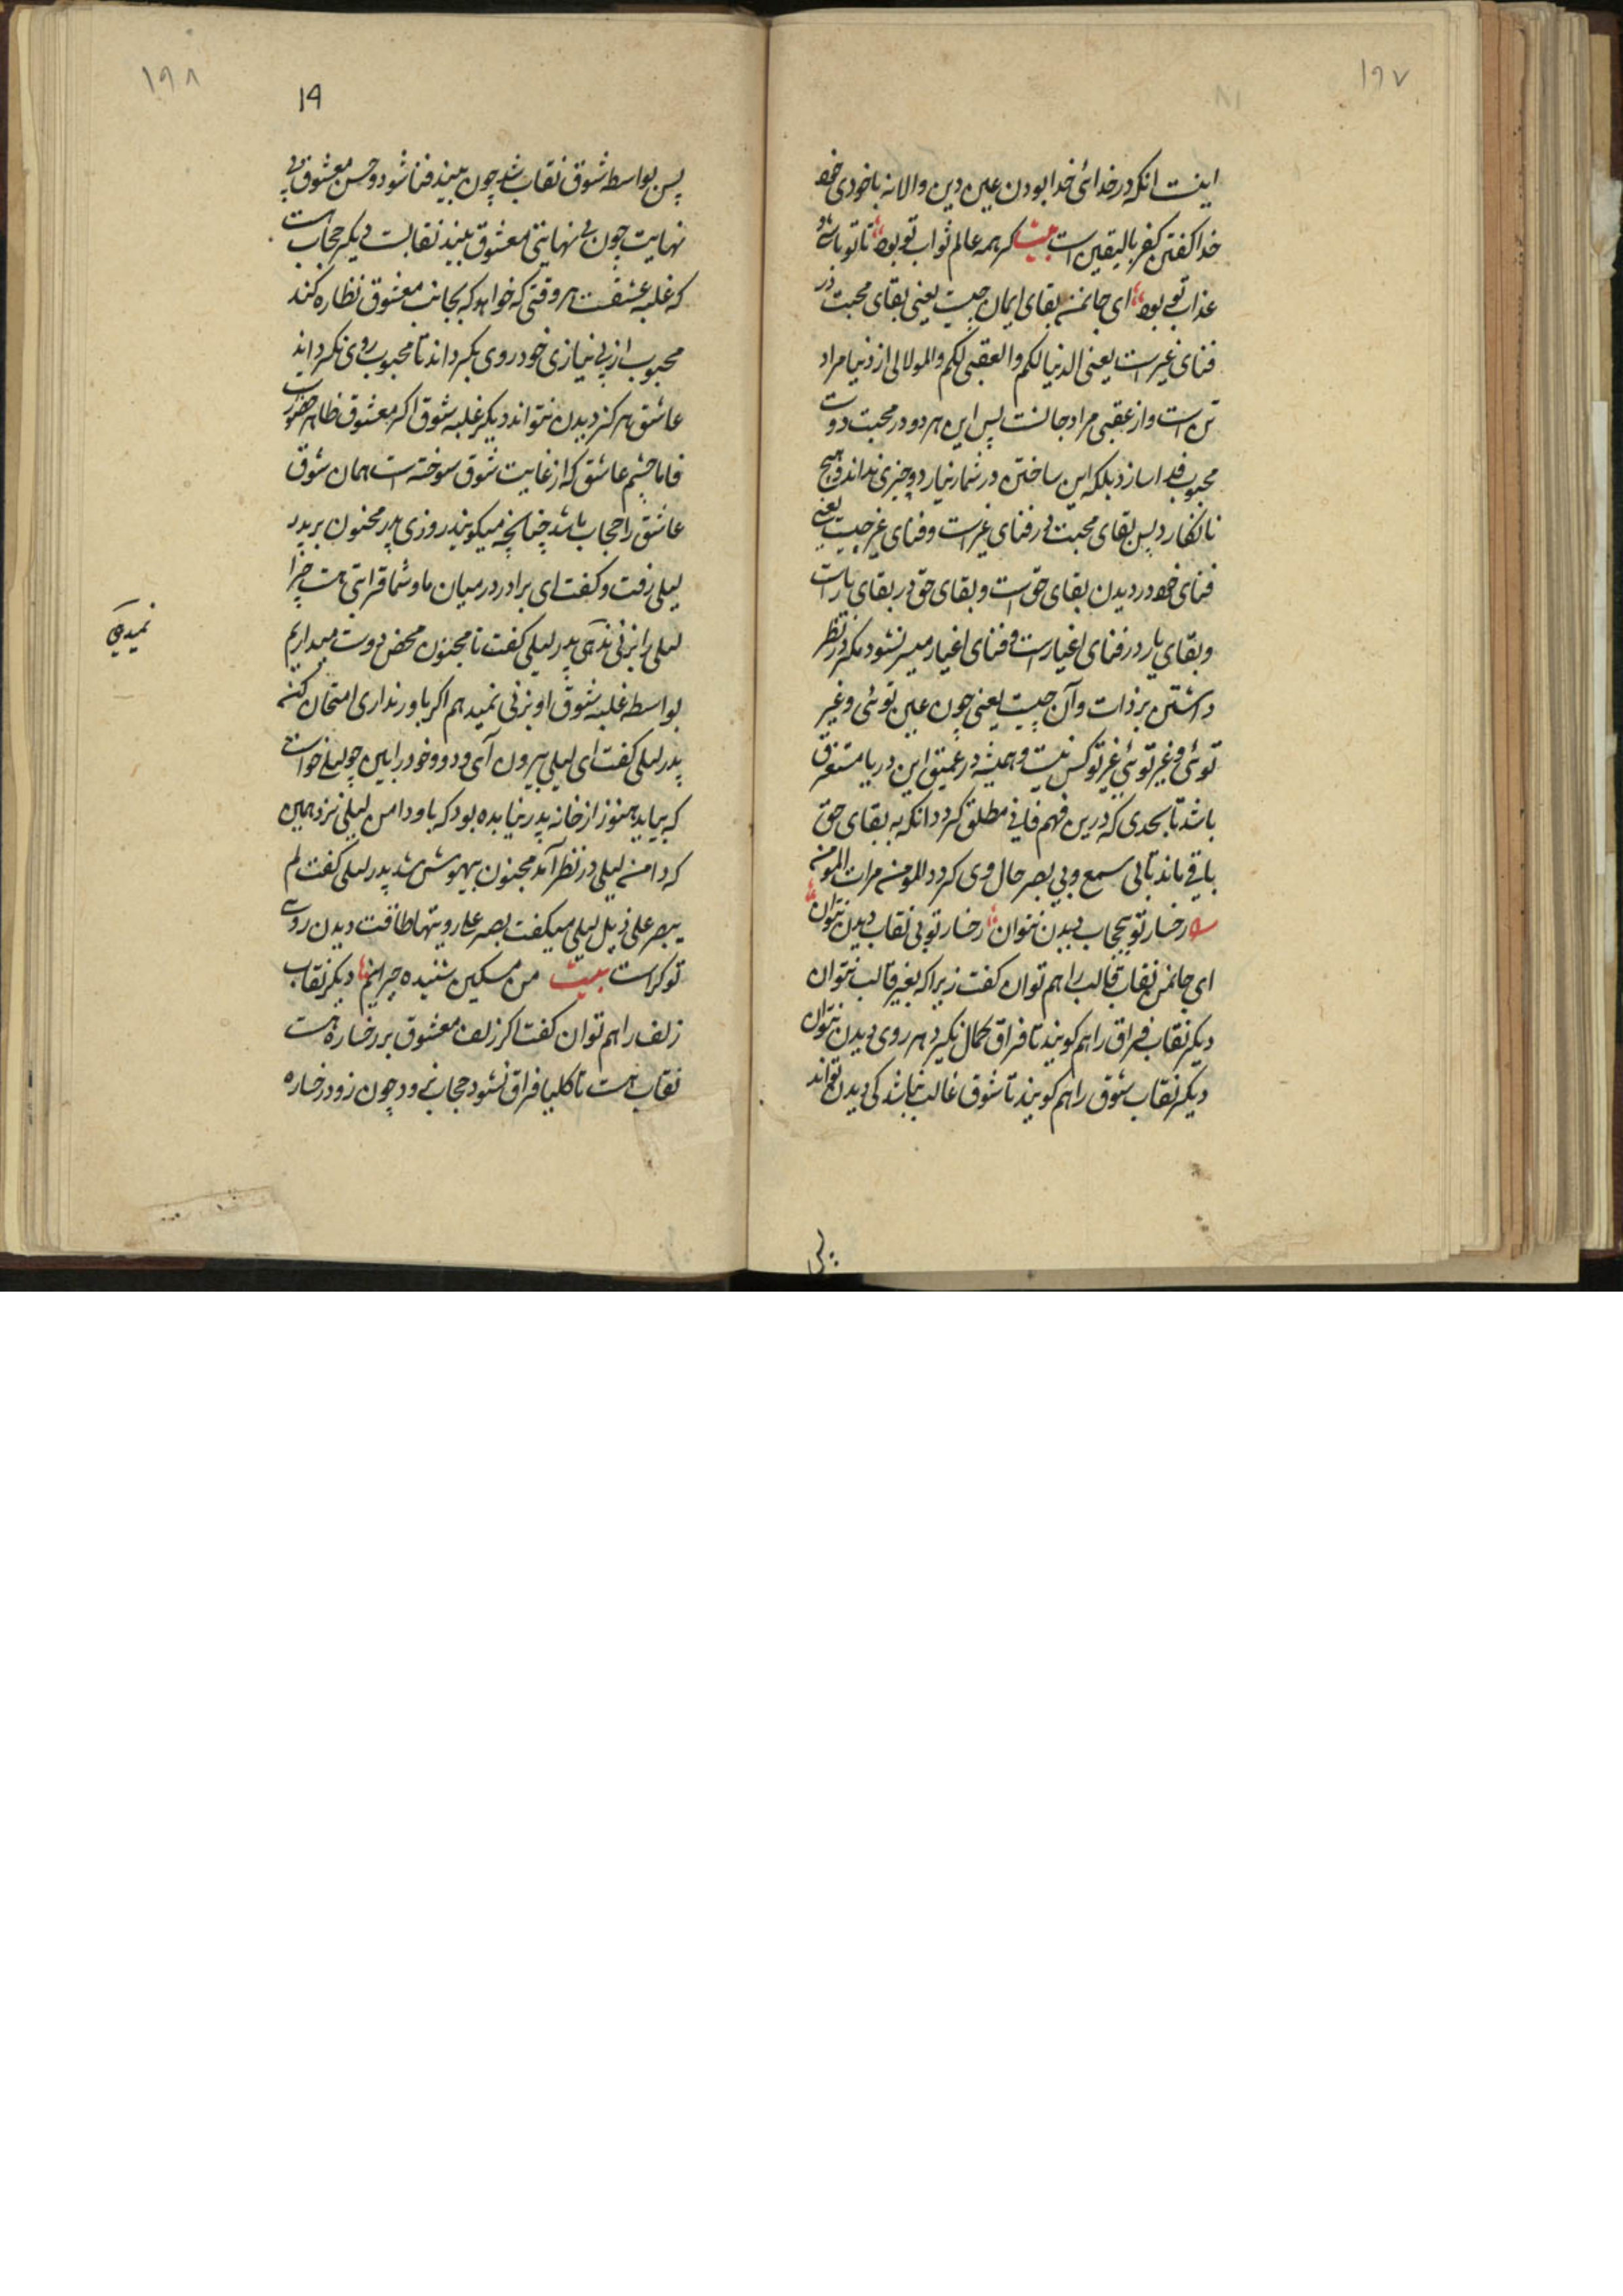 ۱۹۷
اینست انکه در خدائی خدا بودن عین دین والا نه باخودی خود
خدا کفتن کفر بالیقین است بیت کر همه عالم ثواب تو بود تا تو باشی
عذاب تو بود ای جانمن بقای ایمان چیست یعنی بقای محبت در
فنای غیر است یعنی الدنیا لکم والعقبی لکم والمولالی از دنیا مراد
تن است و از عقبی مراد جانست پس این هر دو در محبت دوست
محبوب فدا سازد بلکه این ساختن در شمار نیارد و چیزی نداند و هیچ
نانکارد پس بقای محبت در فنای غیر است و فنای غیر چیست یعنی
فنای خود در دیدن بقای حق است و بقای حق در بقای یار است
و بقای یار در فنای اغیار است و فنای اغیار میسر نشود مکر در نظر
داشتن بر ذات و آن چیست یعنی چون عین توئی و غیر
توئی و غیر توئی غیر تو کس نیست و همیشه در عمیق این دریا مستغرق
باشد تا بحدی که درین فهم فانی مطلق کردد انکه به بقای حق
باقی ماند تا بی سمع و بی بصر حال وی کردد المومن مرات المومن
رخسار تو بیحجاب دیدن نتوان رخسار تو بی نقاب دیدن نتوان
ای جانمن نقاب قالب را هم توان کفت زیرا که بغیر قالب نتوان
دیکر نقاب فراق را هم کویند تا فراق کمال نکیرد هر روی دیدن نتوان
دیکر نقاب شوق را هم کویند تا شوق غالب نباشد کی دیدن تواند
۱۹۸
۱۹
پس بواسطه شوق نقاب شد چون بیند فنا شود و حسن معشوق بی
نهایت چون بی نهایتی معشوق بیند نقابست دیکر حجاب است
که غلبه عشقست هر وقتی که خواهد که بجانب معشوق نظاره کند
محبوب از بی نیازی خود روی بکرداند تا محبوب روی نکرداند
عاشق هرکز دیدن نتواند دیکر غلبه شوق اکر معشوق ظاهر حضور است
فاما چشم عاشق که از غایت شوق سوخته است همان شوق
عاشق را حجاب باشد چنانچه میکویند روزی پدر مجنون بر پدر
لیلی رفت و کفت ای برادر در میان ما و شما قرابتی هست چرا
لیلی را بزنی ندهی پدر لیلی کفت تا مجنون محض دوست میداریم
بواسطه غلبه شوق او بزنی نمیدهم اکر باور نداری امتحان کن
پدر لیلی کفت ای لیلی بیرون آی و دو خود را ببین چو لیلی خواست
که بیاید هنوز از خانه پدر نیامده بود که باو دامن لیلی نزد همین
که دامن لیلی در نظر آمد مجنون بیهوش شد پدر لیلی کفت لم
یبصر علی ذیل لیلی میکفت بصر علی رویتها طاقت دیدن روی
تو کراست بیت من مسکین شنیده حیرانم دیکر نقاب
زلف را هم توان کفت اکر زلف معشوق بر رخساره هست
نقاب هست تا کلیا فراق نشود حجاب نرود چون زود رخساره